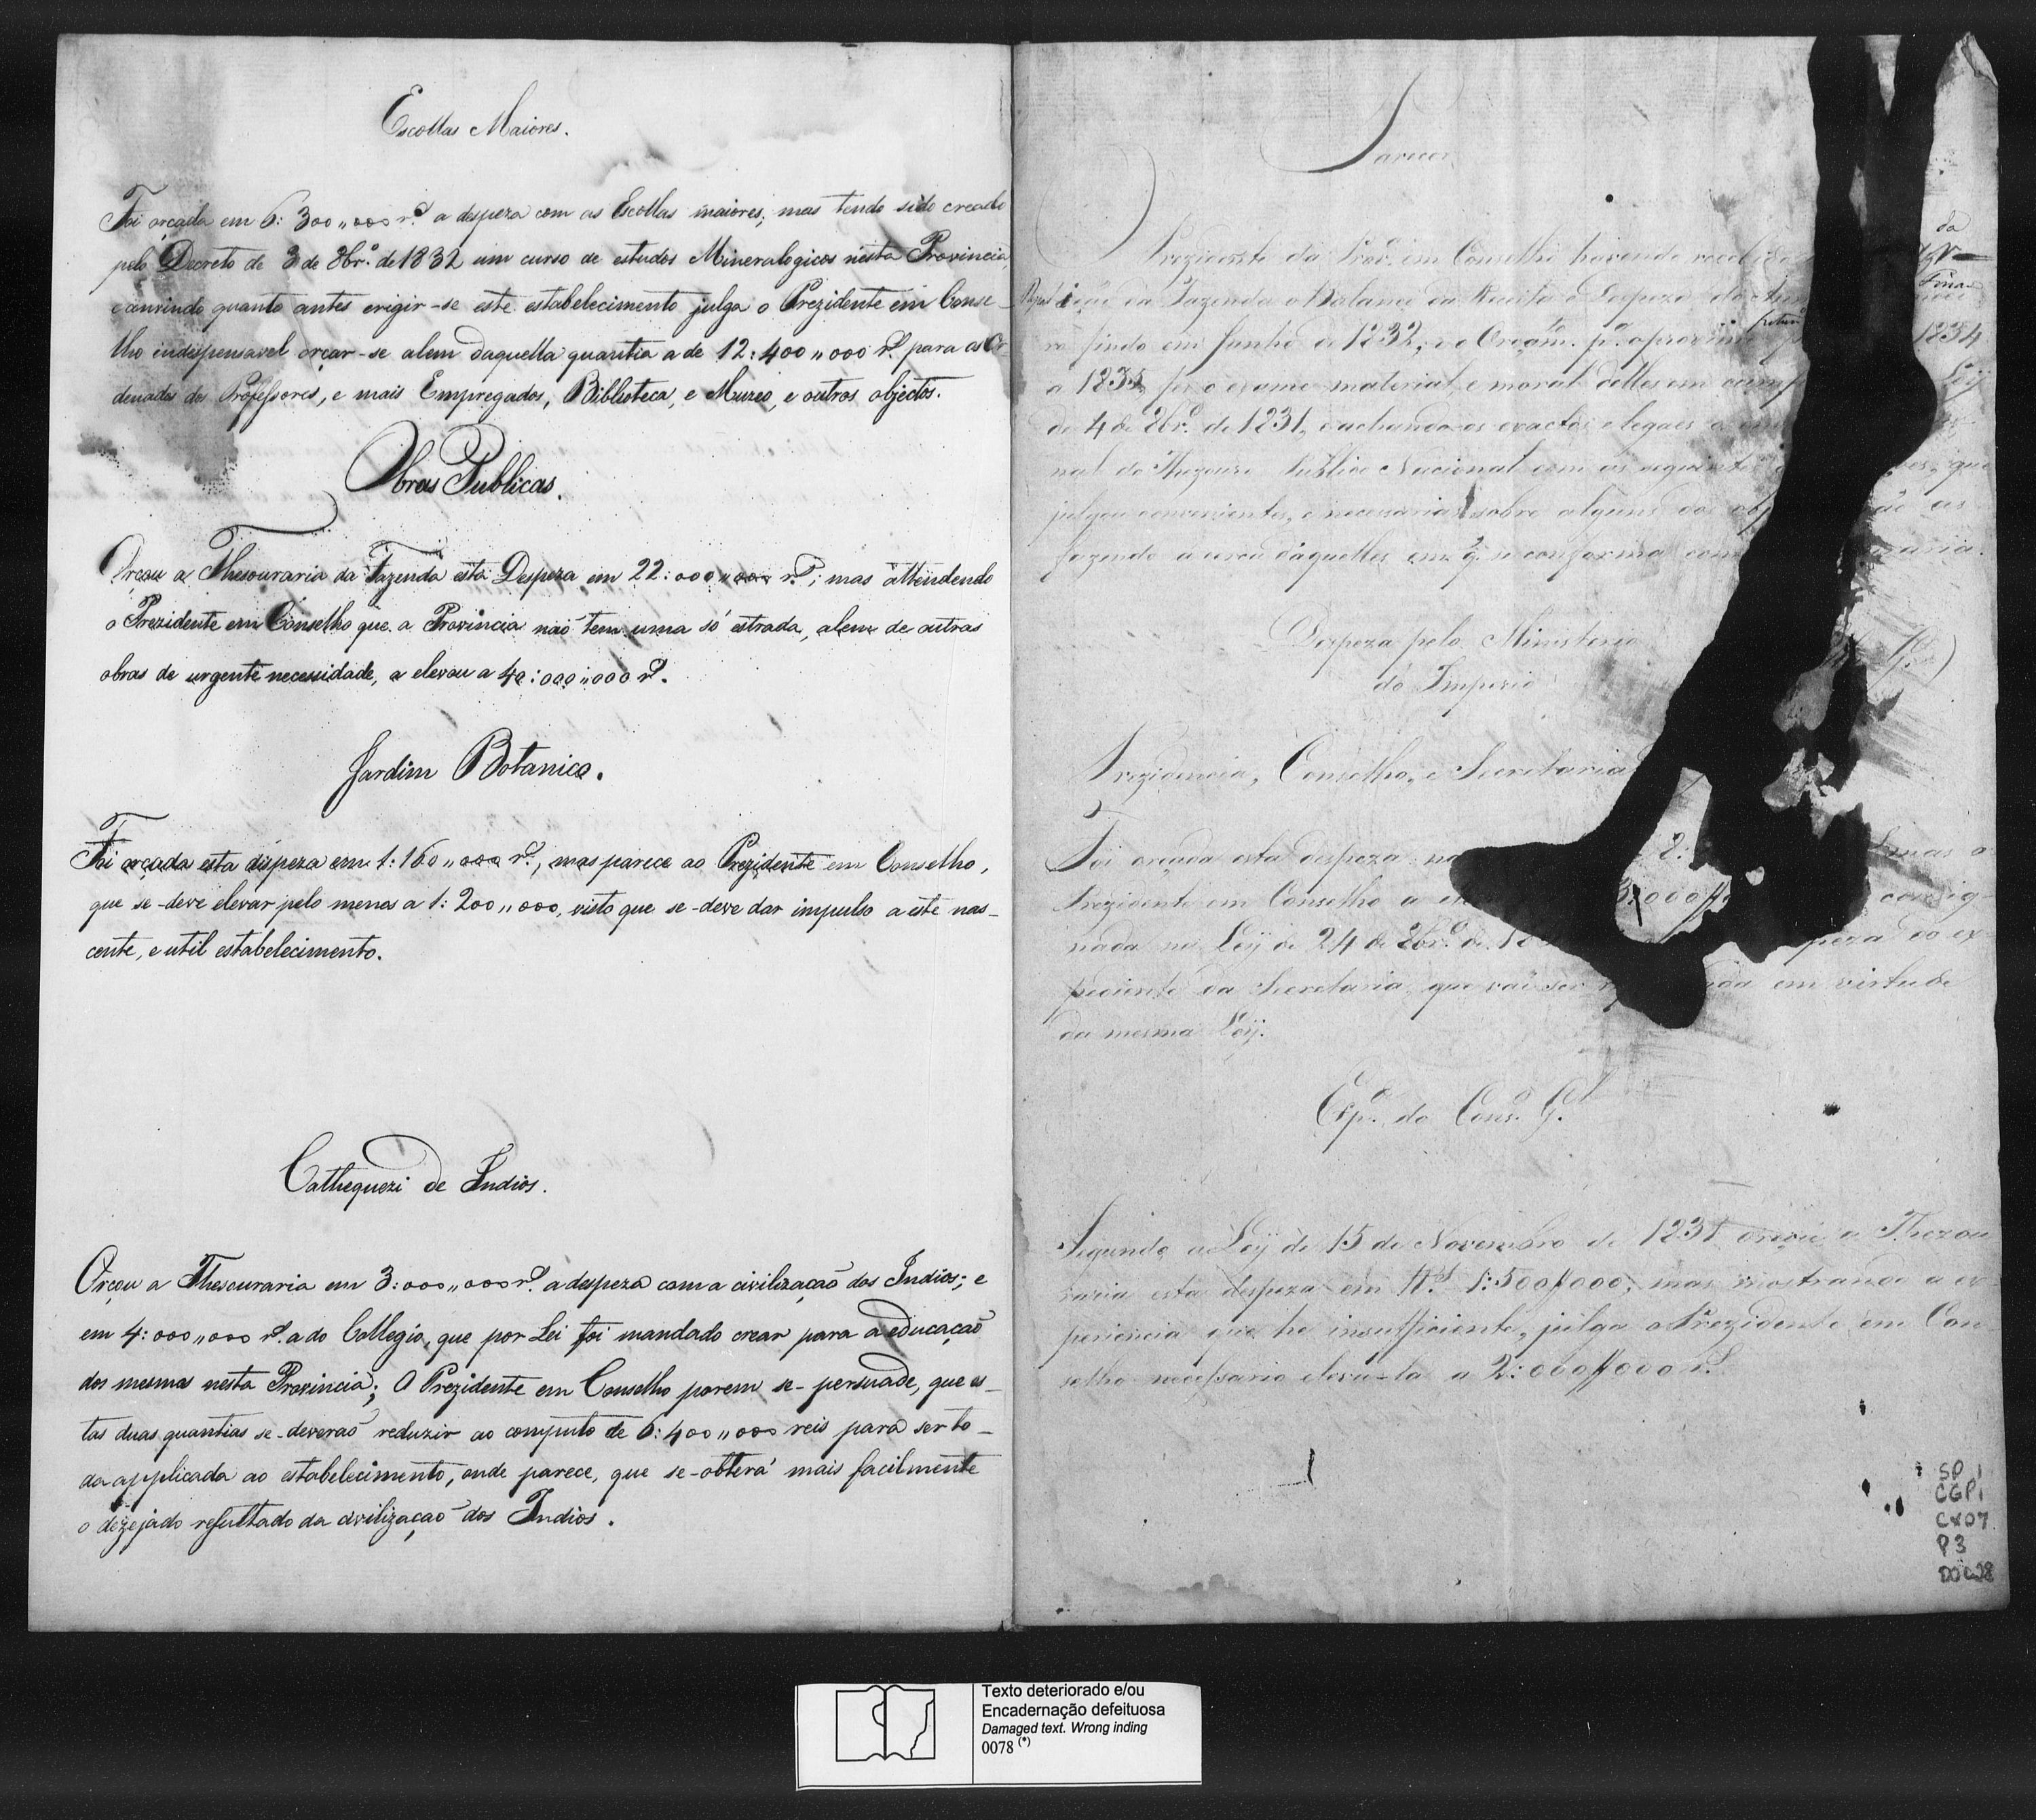 Escollas Maiores.
Foi orçada em 6:300"000 rs. a despeza com as Escollas maiores; mas tendo sido creado
pelo Decreto de 3 de 8br.º de 1832 um curso de estudos Mineralogicos nésta Provincia,
e convindo quanto antes erigir-se este estabelecimento julga o Prezidente em Conse-
lho indispensavel orçar-se alem daquella quantia a de 12:400"000 rs. para os Or
denados dos Professores, e mais Empregados, Biblioteca, e Muzeo, e outros objectos.
Obras Publicas.
Orçou a Thesouraria da Fazenda esta Despeza em 22:000"000 rs.; mas attendendo
o Prezidente em Conselho que a Provincia naõ tem uma só estrada, alem de outras
obras de urgente necessidade, a elevou a 40:000"000 rs.
Jardim Botanico.
Foi orçada esta dispeza em 1:160"000 rs., mas parece ao Prezidente em Conselho,
que se-deve elevar pelo menos a 1:200"000, visto que se-deve dar impulso a este nas-
cente, e util estabelecimento.
Cathequezi de Indios.
Orçou a Thesouraria em 3:000"000 rs. a despeza com a civilizaçaõ dos Indios; e
em 4:000"000 rs. a do Collegio, que por Lei foi mandado crear para a educaçaõ
dos mesmos nesta Provincia; O Prezidente em Conselho porem se-persuade, que es-
tas duas quantias se-deveraõ reduzir ao computo de 6:400"000 reis para ser to-
da applicada ao estabelecimento, onde parece, que se-obterá mais facilmente
o dezejado resultado da civilizaçaõ dos Indios.
Parecer
Prezidente da Prov.ª em Conselho havendo recebido da
da Fazenda o Balanço da Receita e Despeza do Finan
ro findo em Junho de 1832, e o Orçam.to p.ª o proximo futuro 1834
a 1835 fez o exame material, e moral delles em Ley
de 4 de 8br.º de 1831, e achando-os exactos e legaes
nal do Thezouro Publico Nacional com as seguintes que
julgou convenientes, e necessarias sobre alguns dos as
fazendo a cerca daquelles em q. se conforma com
Despeza pelo Ministerio
do Imperio
Prezidencia, Conselho, e Secretaria
Foi orçada esta despeza na 2: mas o
Prezidente em Conselho a 3:000 consig-
nada na Ley de 24 de 8br.º de peza do ex-
pediente da Secretaria, que vai ser em virtude
da mesma Ley.
Exp.e do Cons.º G.l
Segundo a Ley de 15 de Novembro de 1831 orçou a Thezou
raria esta despeza em Rs. 1:500$000; mas mostrando a ex
periencia que he insufficiente, julga o Prezidente em Con
selho necessario elevá-la a 2:000$000 rs.
SP
CGP1
CX07
P3
DOC28
Texto deteriorado e/ou
Encadernação defeituosa
Damaged text. Wrong inding
0078 (*)